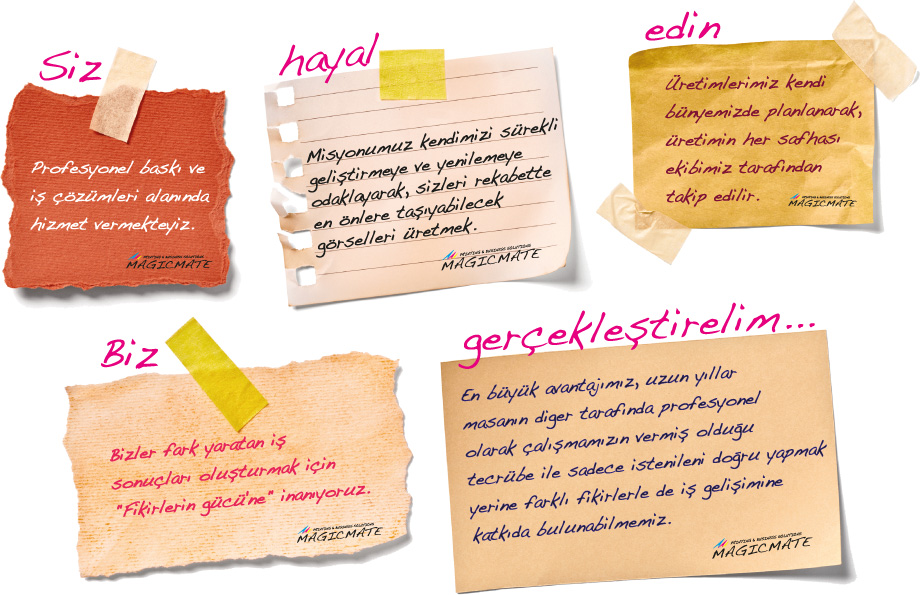 Siz
Profesyonel baskı ve
iş çözümleri alanında
hizmet vermekteyiz.
PRINTING & BUSINESS SOLUTIONS
MAGICMATE
hayal
Misyonumuz kendimizi sürekli
geliştirmeye ve yenilemeye
odaklayarak, sizleri rekabette
en önlere taşıyabilecek
görselleri üretmek.
PRINTING & BUSINESS SOLUTIONS
MAGICMATE
edin
Üretimlerimiz kendi
bünyemizde planlanarak,
üretimin her safhası
ekibimiz tarafından
takip edilir.
PRINTING & BUSINESS SOLUTIONS
MAGICMATE
Biz
Bizler fark yaratan iş
sonuçları oluşturmak için
"Fikirlerin gücü'ne" inanıyoruz.
PRINTING & BUSINESS SOLUTIONS
MAGICMATE
gerçekleştirelim...
En büyük avantajımız, uzun yıllar
masanın diger tarafında profesyonel
olarak çalışmamızın vermiş olduğu
tecrübe ile sadece istenileni doğru yapmak
yerine farklı fikirlerle de iş gelişimine
katkıda bulunabilmemiz.
PRINTING & BUSINESS SOLUTIONS
MAGICMATE